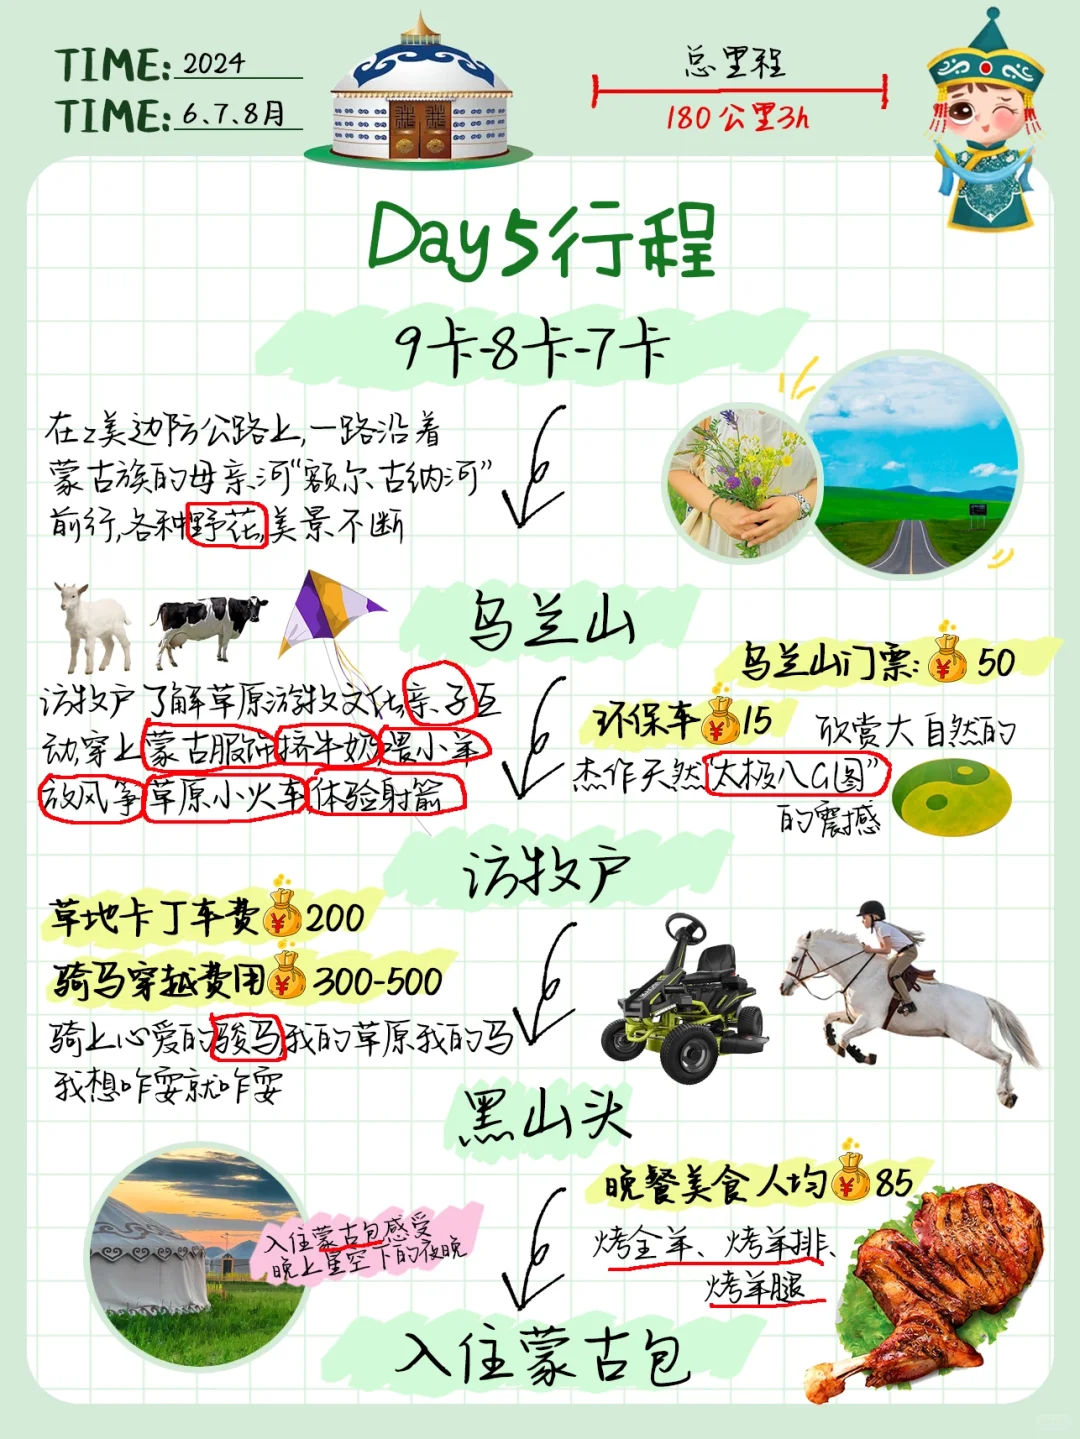 TIME: 2024
TIME: 6.7.8月
总里程
180公里3h
Day5行程
9卡-8卡-7卡
在z美边防公路上,一路沿着
蒙古族的母亲河“额尔古纳河”
前行,各种野花,美景不断
乌兰山
乌兰山门票: ¥ 50
环保车 ¥ 15
欣赏大自然的
杰作天然“太极八G图”
的震撼
访牧户 了解草原游牧文化,亲子互
动,穿上蒙古服饰挤牛奶,喂小羊
放风筝草原小火车,体验射箭
访牧户
草地卡丁车费 ¥ 200
骑马穿越费用 ¥ 300-500
骑上心爱的骏马,我的草原我的马
我想咋耍就咋耍
黑山头
晚餐美食人均 ¥ 85
烤全羊、烤羊排、
烤羊腿
入住蒙古包感受
晚上星空下的夜晚
入住蒙古包